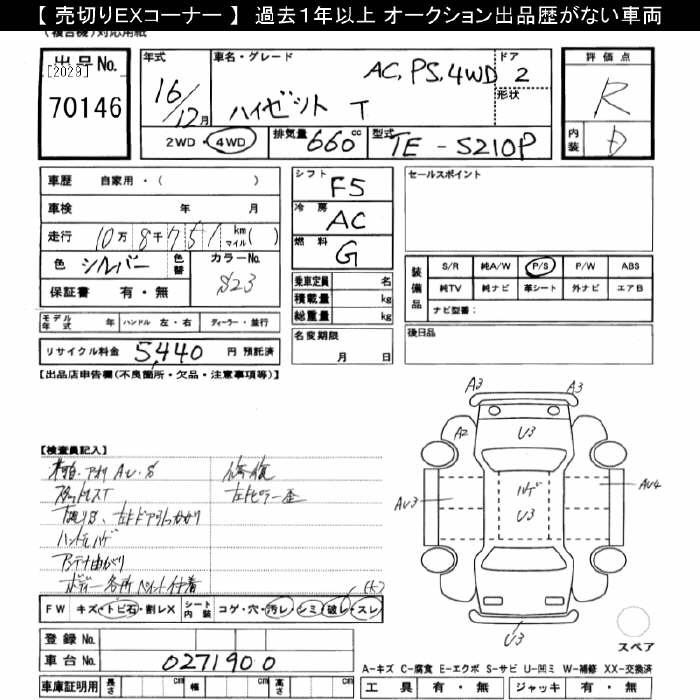 【 売切りEXコーナー 】 過去1年以上 オークション出品歴がない車両
(複合機)対応用紙
出品No.
[2029]
70146
年式
16/12月
車名・グレード
AC, PS, 4WD
ハイゼット T
ドア
2
形状
評価点
R
内装
D
2WD・4WD
排気量 660 cc
型式 TE-S210P
車歴 自家用・( )
車検 年 月
走行 10万8千751 km マイル( )
色 シルバー 色替
カラーNo. S23
保証書 有・無
シフト F5
冷房 AC
燃料 G
乗車定員 名
積載量 kg
総重量 kg
名変期限
月 日
セールスポイント
装備品
S/R 純A/W P/S P/W ABS
純TV 純ナビ 革シート 外ナビ エアB
ナビ型番:
後日品
モデル年式 年 ハンドル 左・右 ディーラー・並行
リサイクル料金 5,440 円 預託済
【出品店申告欄(不良箇所・欠品・注意事項等)】
【検査員記入】
アオリ AU・S
修復
左ピラー歪
下廻りS、左ドア引っかかり
ハンドルハゲ
アンテナ曲がり
ボディー各所ペイント付着
FW キズ・トビ石・割レX シート内装 コゲ・穴・汚レ・シミ・破レ・スレ
登録No.
車台No. 0271900
車庫証明用 長さ cm 幅 cm 高さ cm
A3 A3
A2 U3
AU3 ハゲ AU4
U3
U3
スペア
A-キズ C-腐食 E-エクボ S-サビ U-凹ミ W-補修 XX-交換済
工具 有・無 ジャッキ 有・無